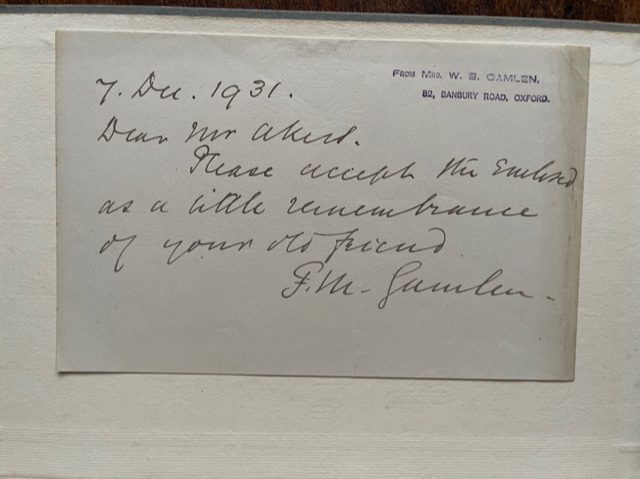 FROM MRS. W. B. GAMLEN,
82, BANBURY ROAD, OXFORD.
7. Dec. 1931.
Dear Mr
Please accept the Enclosed
as a little remembrance
of your old friend
F.M. Gamlen.